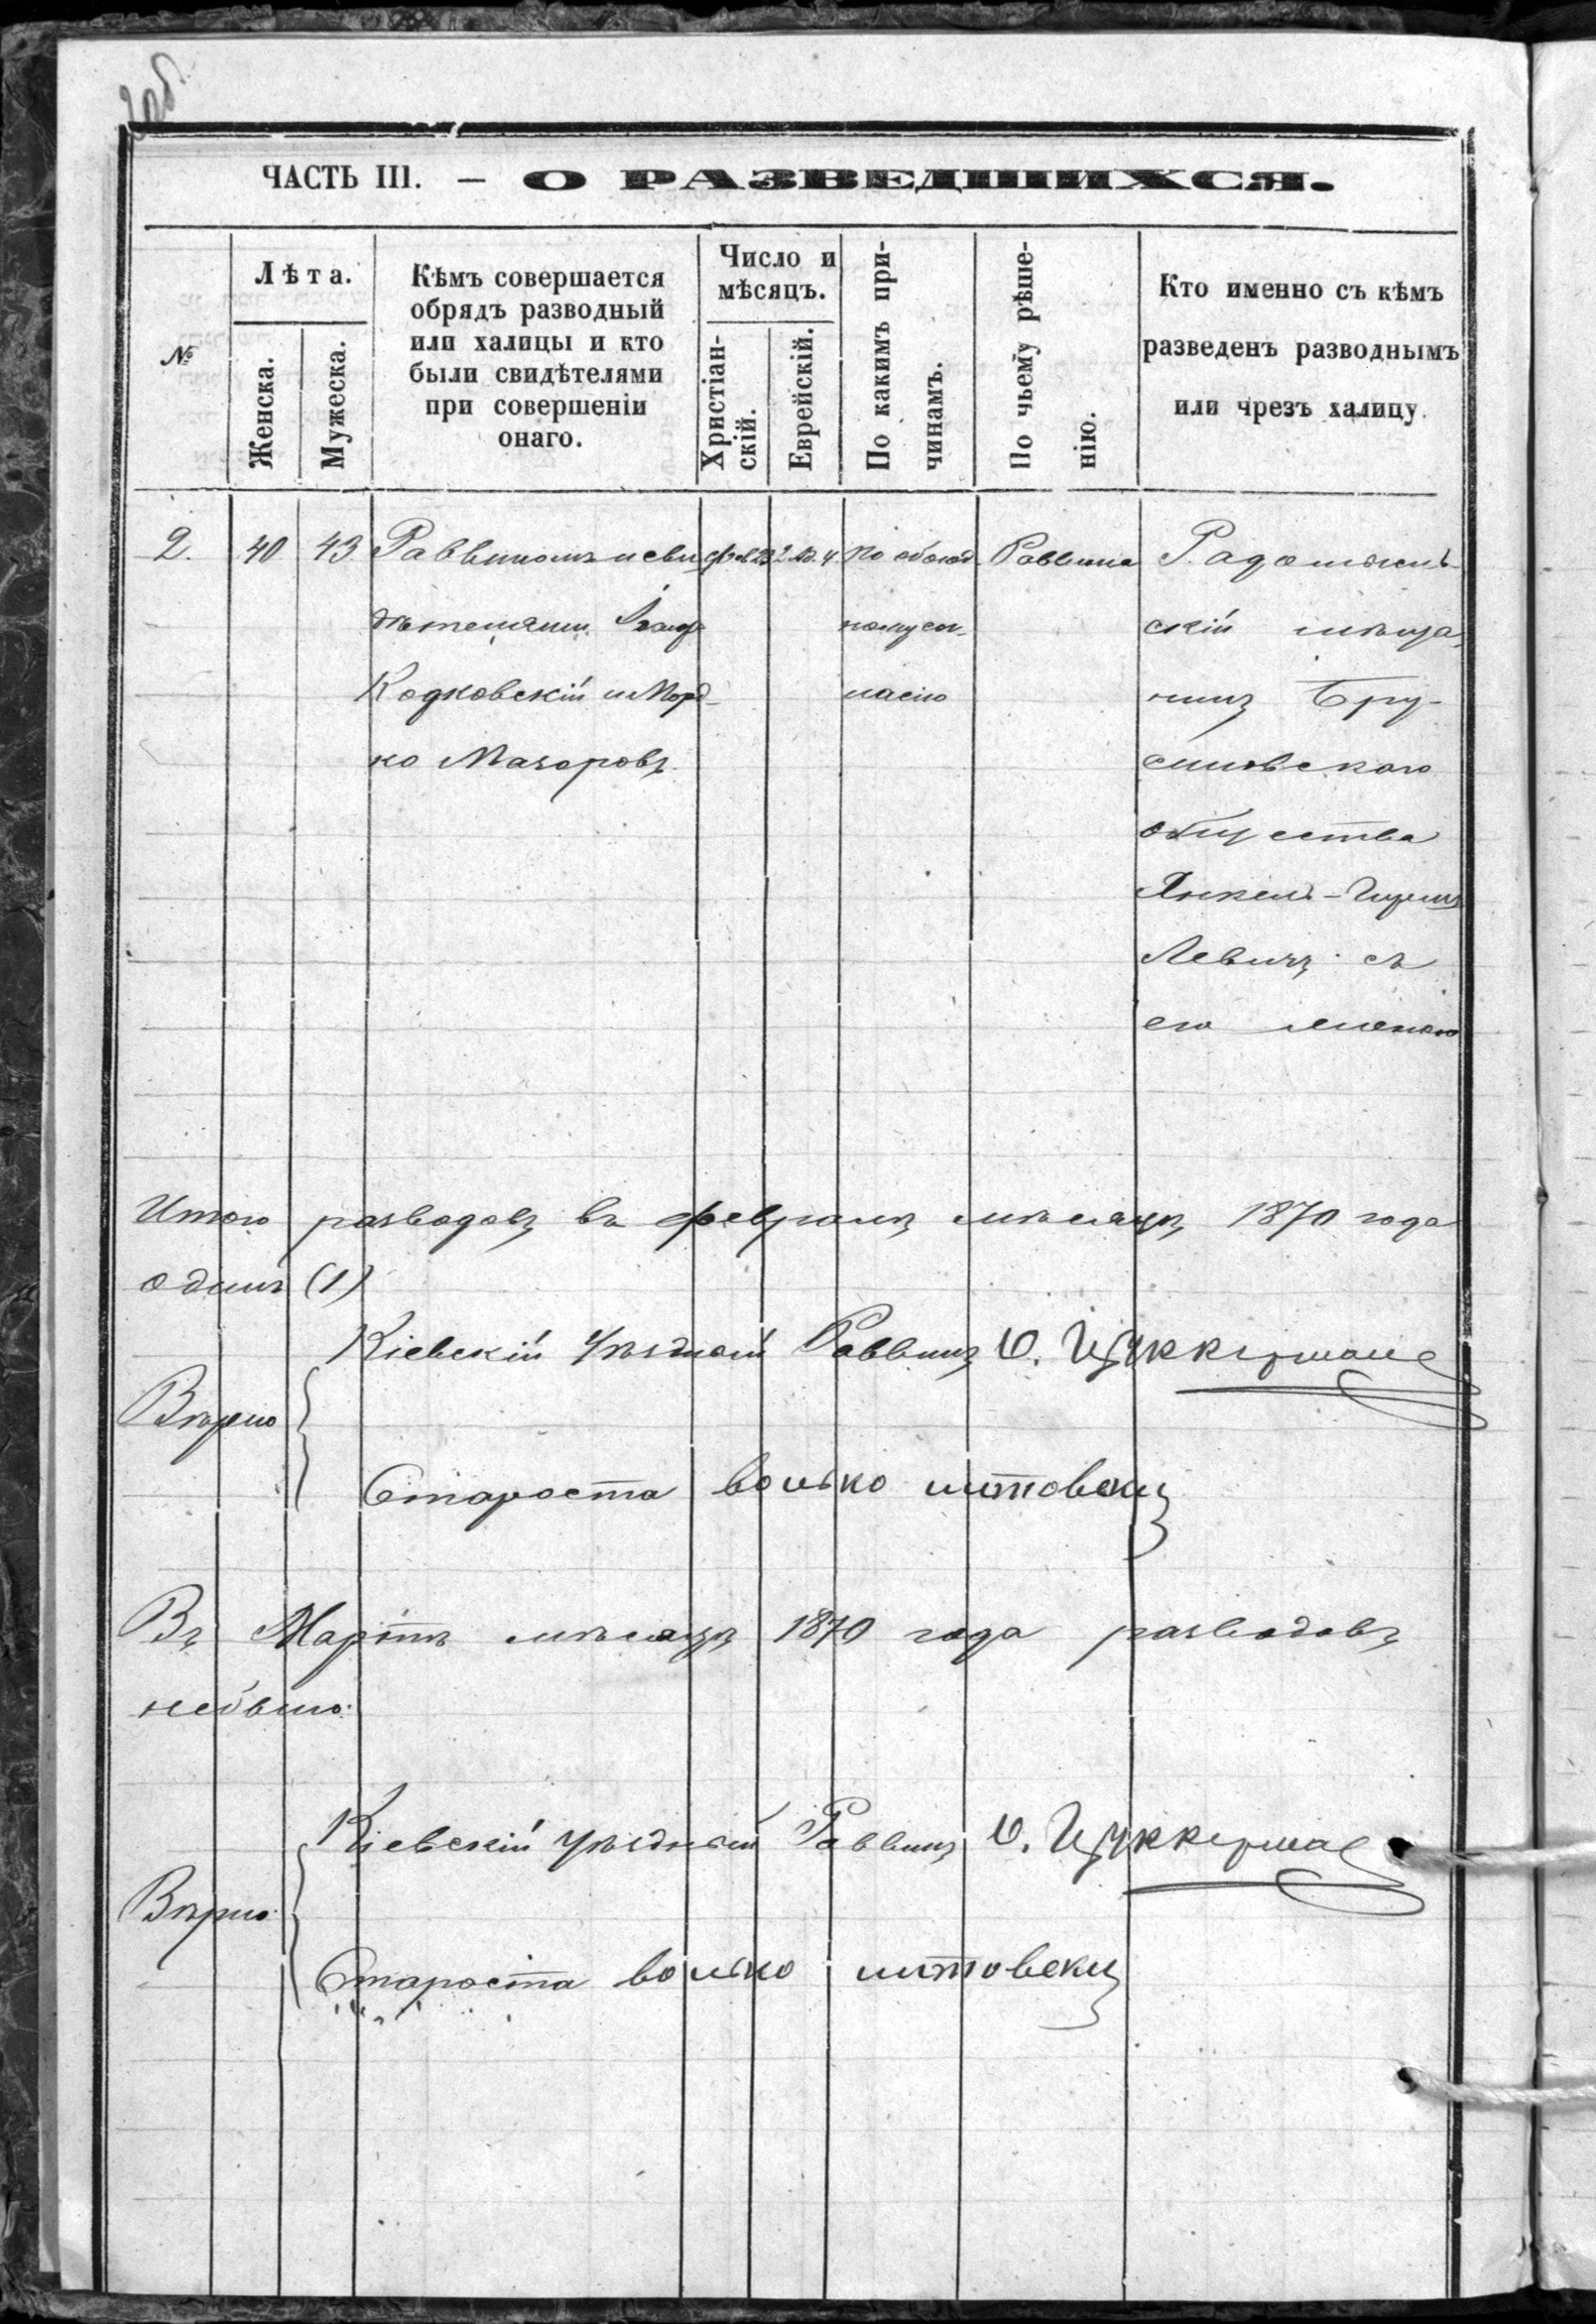 2об.
ЧАСТЬ III. — О РАЗВЕДШИХСЯ.
№
Лѣта.
Женска.
Мужеска.
Кѣмъ совершается
обрядъ разводный
или халицы и кто
были свидѣтелями
при совершеніи
онаго.
Число и
мѣсяцъ.
Христіан-
скій.
Еврейскій.
По какимъ при-
чинамъ.
По чьему рѣше-
нію.
Кто именно съ кѣмъ
разведенъ разводнымъ
или чрезъ халицу.
2.
40
43
Раввиномъ и сви
дѣтелями
Кодковскій и Морд-
ко Мазоровъ
Фев 23
2 Ад. 4.
По обоюд-
ному сог-
ласію
Раввина
Радомысль-
скій мѣща-
нинъ Бру-
силовскаго
общества
Янкель-Гершъ
Левичъ съ
его женою
Итого разводовъ въ февралѣ мѣсяцѣ 1870 года
одинъ (1)
Кіевскій Уѣздный Раввинъ И. Цуккерманъ
Вѣрно
Староста волько литовски
Въ Мартѣ мѣсяцѣ 1870 года разводовъ
небыло.
Кіевскій Уѣздный Раввинъ И. Цуккерма
Вѣрно
Староста волько литовски